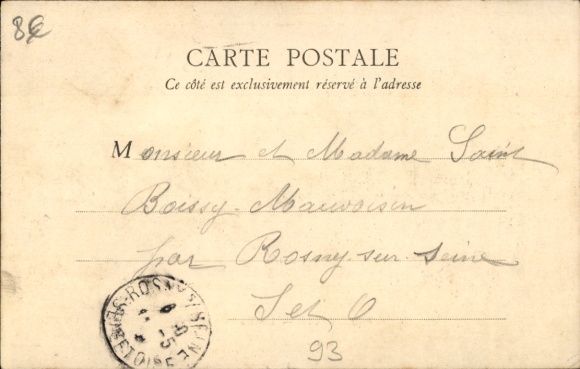 8€
CARTE POSTALE
Ce côté est exclusivement réservé à l'adresse
Monsieur et Madame Saint
Boissy-Mauvoisin
par Rosny-sur-Seine
S et O
93
ROSNY S/ SEINE
SEINE-ET-OISE